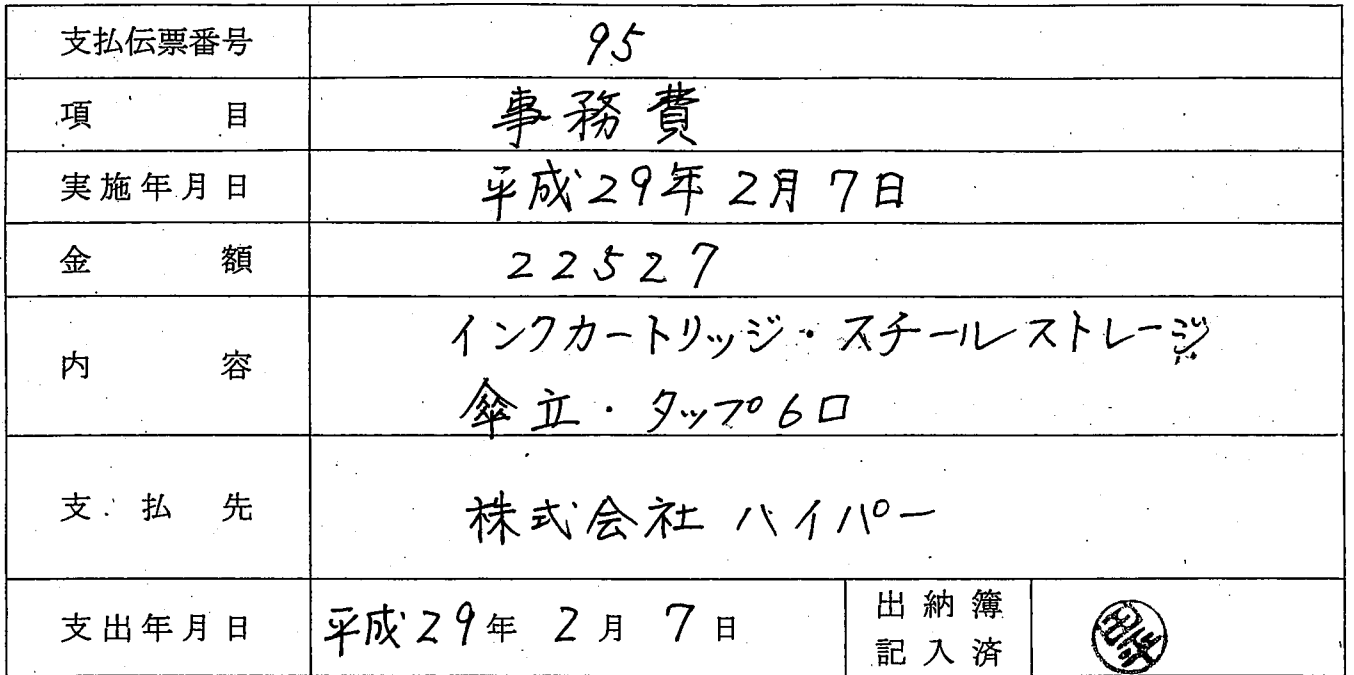 支払伝票番号 95
項目 事務費
実施年月日 平成29年2月7日
金額 22527
内容 インクカートリッジ・スチールストレージ
傘立・タップ6口
支払先 株式会社ハイパー
支出年月日 平成29年2月7日 出納簿
記入済